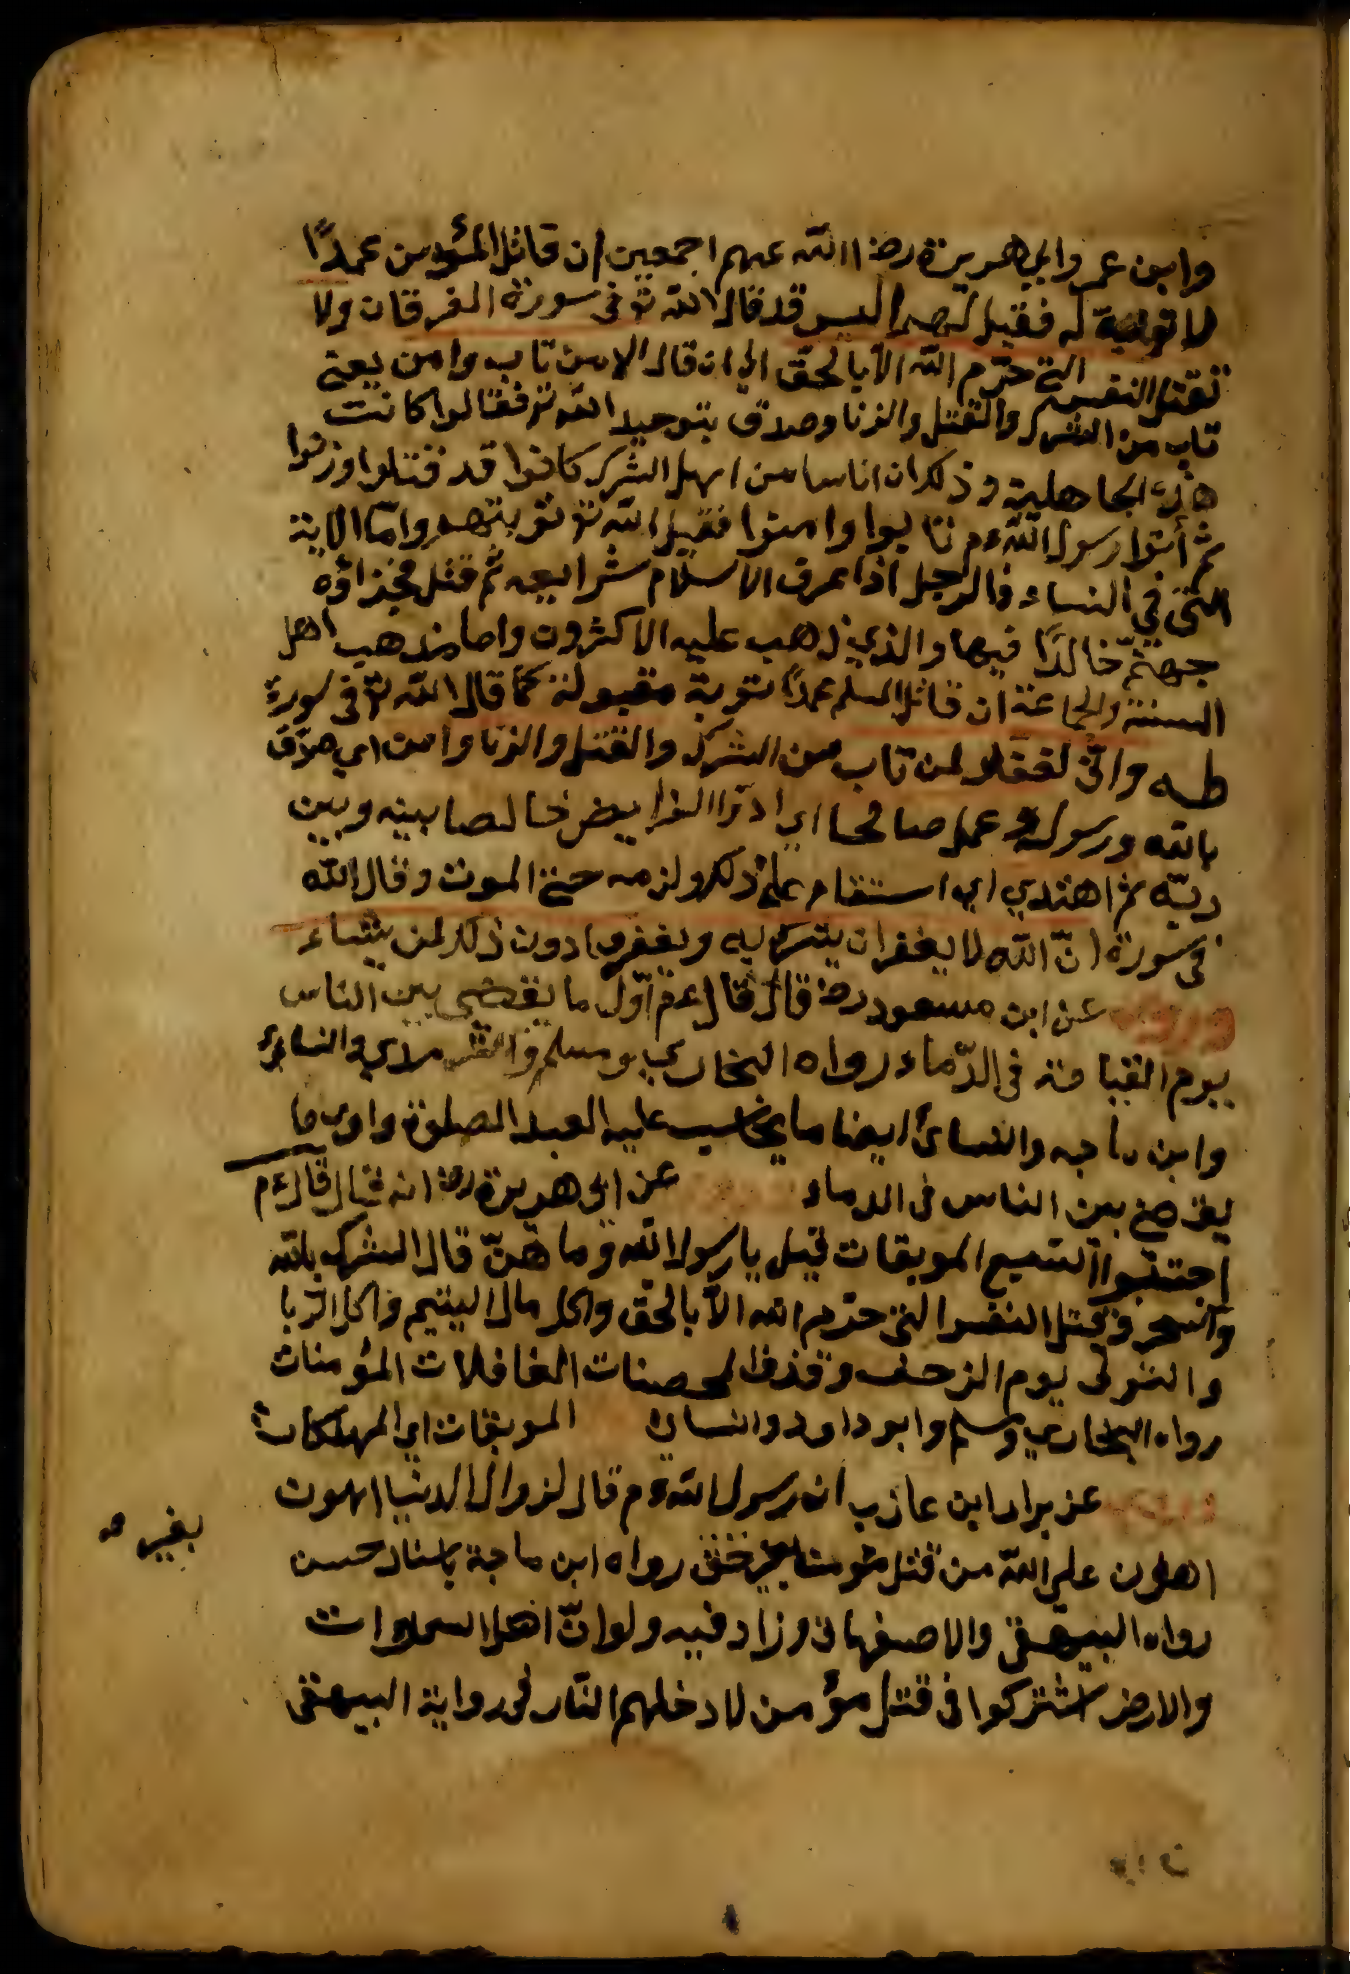 وابن عمر وابي هريرة رضۤ الله عنهم اجمعين ان قاتل المؤمن عمدًا
لا توبة له فقيل لهم اليس قد قال الله تۤع في سورة الفرقان ولا
تقتل النفس التي حرّم الله الا بالحق الى ان قال الا من تاب وامن يعني
تاب من الشرك والقتل والزنا وصدق بتوحيد الله تۤع فقالوا كانت
هذه الجاهلية وذكر ان اناسا من اهل الشرك كانوا قد قتلوا وزنوا
ثم أتوا رسول الله ءم تابوا وامنوا فقبل الله تۤع توبتهم واما الاية
التي في النساء فالرجل اذا عرف الاسلام شرايعه ثم قتل فجزاؤه
جهنّم خالدًا فيها والذي ذهب عليه الاكثرون واما مذهب اهل
السنة والجماعة ان قاتل المسلم عمدًا توبة مقبولة كما قال الله تۤع في سورة
طه وانّي لغفار لمن تاب من الشرك والقتل والزنا وامن اي صدّق
بالله ورسوله وعمل صالحا اي ادّا الفرايض خالصا بينه وبين
ربّه ثم اهتدي اي استقام علي ذلك ولزمه حتي الموت وقال الله
في سورة انّ الله لا يغفر ان يشرك به ويغفر ما دون ذلك لمن يشاء
وروي عن ابن مسعود رضۤ قال قال ءم اوّل ما يقضي بين الناس
يوم القيامة في الدّماء رواه البخاري ومسلم والترمذي والنسائ
وابن ماجه والنسائ ايضا ما يحاسب عليه العبد الصلوة واول ما
يقضي بين الناس في الدماء عن ابي هريرة رضۤ انه قال قال ءم
اجتنبوا السبع الموبقات قيل يا رسول الله وما هنّ قال الشرك بالله
والسحر وقتل النفس التي حرّم الله الا بالحق واكل مال اليتيم واكل الربا
والتولي يوم الزحف وقذف المحصنات الغافلات المؤمنات
رواه البخاري ومسلم وابو داود والنسائ الموبقات اي المهلكات
عن براء ابن عازب ان رسول الله ءم قال لزوال الدنيا اهون
اهون علي الله من قتل مؤمنا بغير حق رواه ابن ماجة باسناد حسن
بغير
رواه البيهقي والاصفهاني وزاد فيه ولو انّ اهل السماوات
والارض اشتركوا في قتل مؤمن لادخلهم النّار في رواية البيهقي